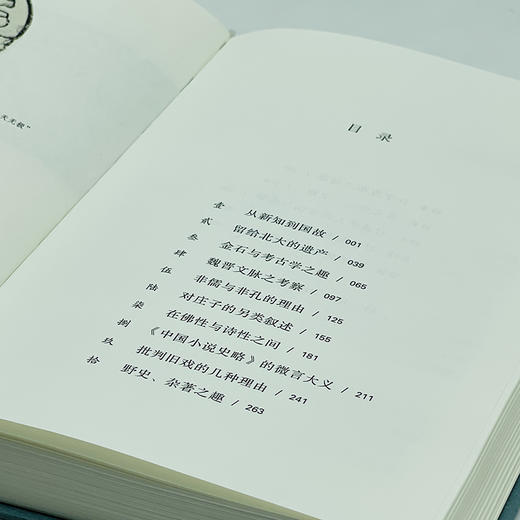 目录
壹 从新知到国故 / 001
贰 留给北大的遗产 / 039
叁 金石与考古学之趣 / 065
肆 魏晋文脉之考察 / 097
伍 非儒与非孔的理由 / 125
陆 对庄子的另类叙述 / 155
柒 在佛性与诗性之间 / 181
捌 《中国小说史略》的微言大义 / 211
玖 批判旧戏的几种理由 / 241
拾 野史、杂著之趣 / 263